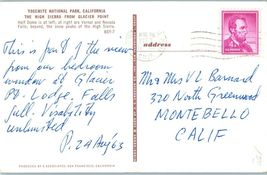 YOSEMITE NATIONAL PARK, CALIFORNIA
THE HIGH SIERRA FROM GLACIER POINT
Half Dome is at left, at right are Vernal and Nevada
Falls; beyond, the snow peaks of the High Sierra.
This is part of the view
from our bedroom
window at Glacier
Pt. Lodge. Falls
full. Visability
unlimited
P. 24 Aug '63
address
4¢
Mr & Mrs V L Barnard
320 North Greenwood
MONTEBELLO
CALIF